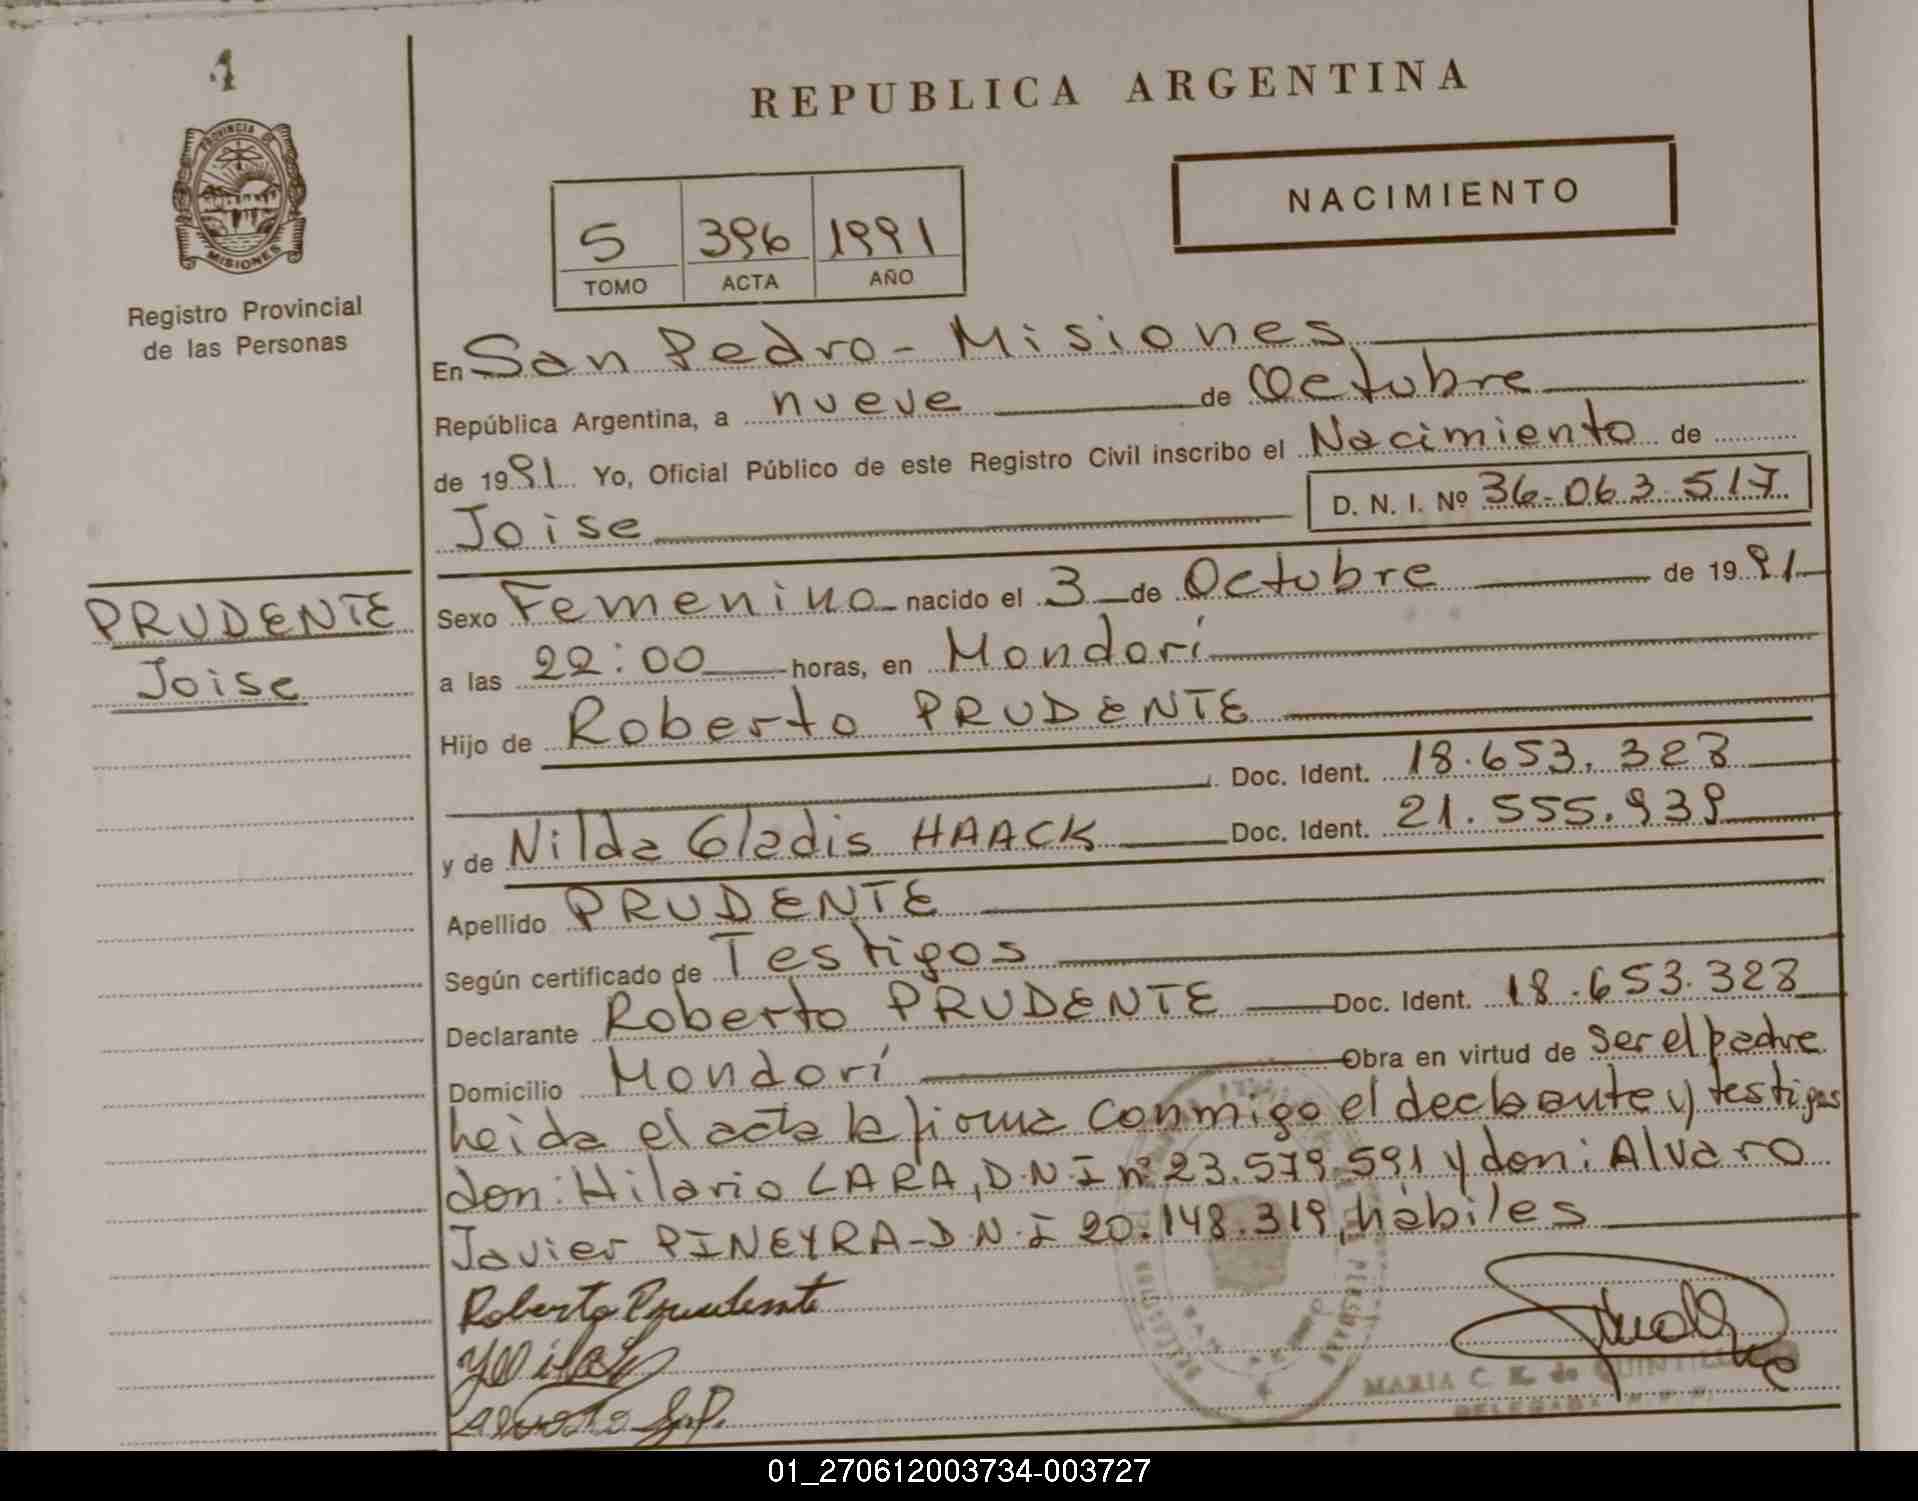 1
PROVINCIA DE
MISIONES
Registro Provincial
de las Personas
PRUDENTE
Joise
REPUBLICA ARGENTINA
NACIMIENTO
5 396 1991
TOMO ACTA AÑO
En San Pedro - Misiones
República Argentina, a nueve de Octubre
de 1991 Yo, Oficial Público de este Registro Civil inscribo el Nacimiento de
Joise D. N. I. Nº 36.063.517
Sexo Femenino nacido el 3 de Octubre de 1991
a las 22:00 horas, en Mondorí
Hijo de Roberto PRUDENTE
Doc. Ident. 18.653.328
y de Nilda Gladis HAACK Doc. Ident. 21.555.939
Apellido PRUDENTE
Según certificado de Testigos
Declarante Roberto PRUDENTE Doc. Ident. 18.653.328
Domicilio Mondorí Obra en virtud de ser el padre
heida el acta la firma conmigo el declarante y testigos
don: Hilario LARA, D.N.I nº 23.579.591 y don: Alvaro
Javier PINEYRA - D.N.I 20.148.319, hábiles
Roberto Prudente
MARIA C. K. de
DELEGADA
01_270612003734-003727